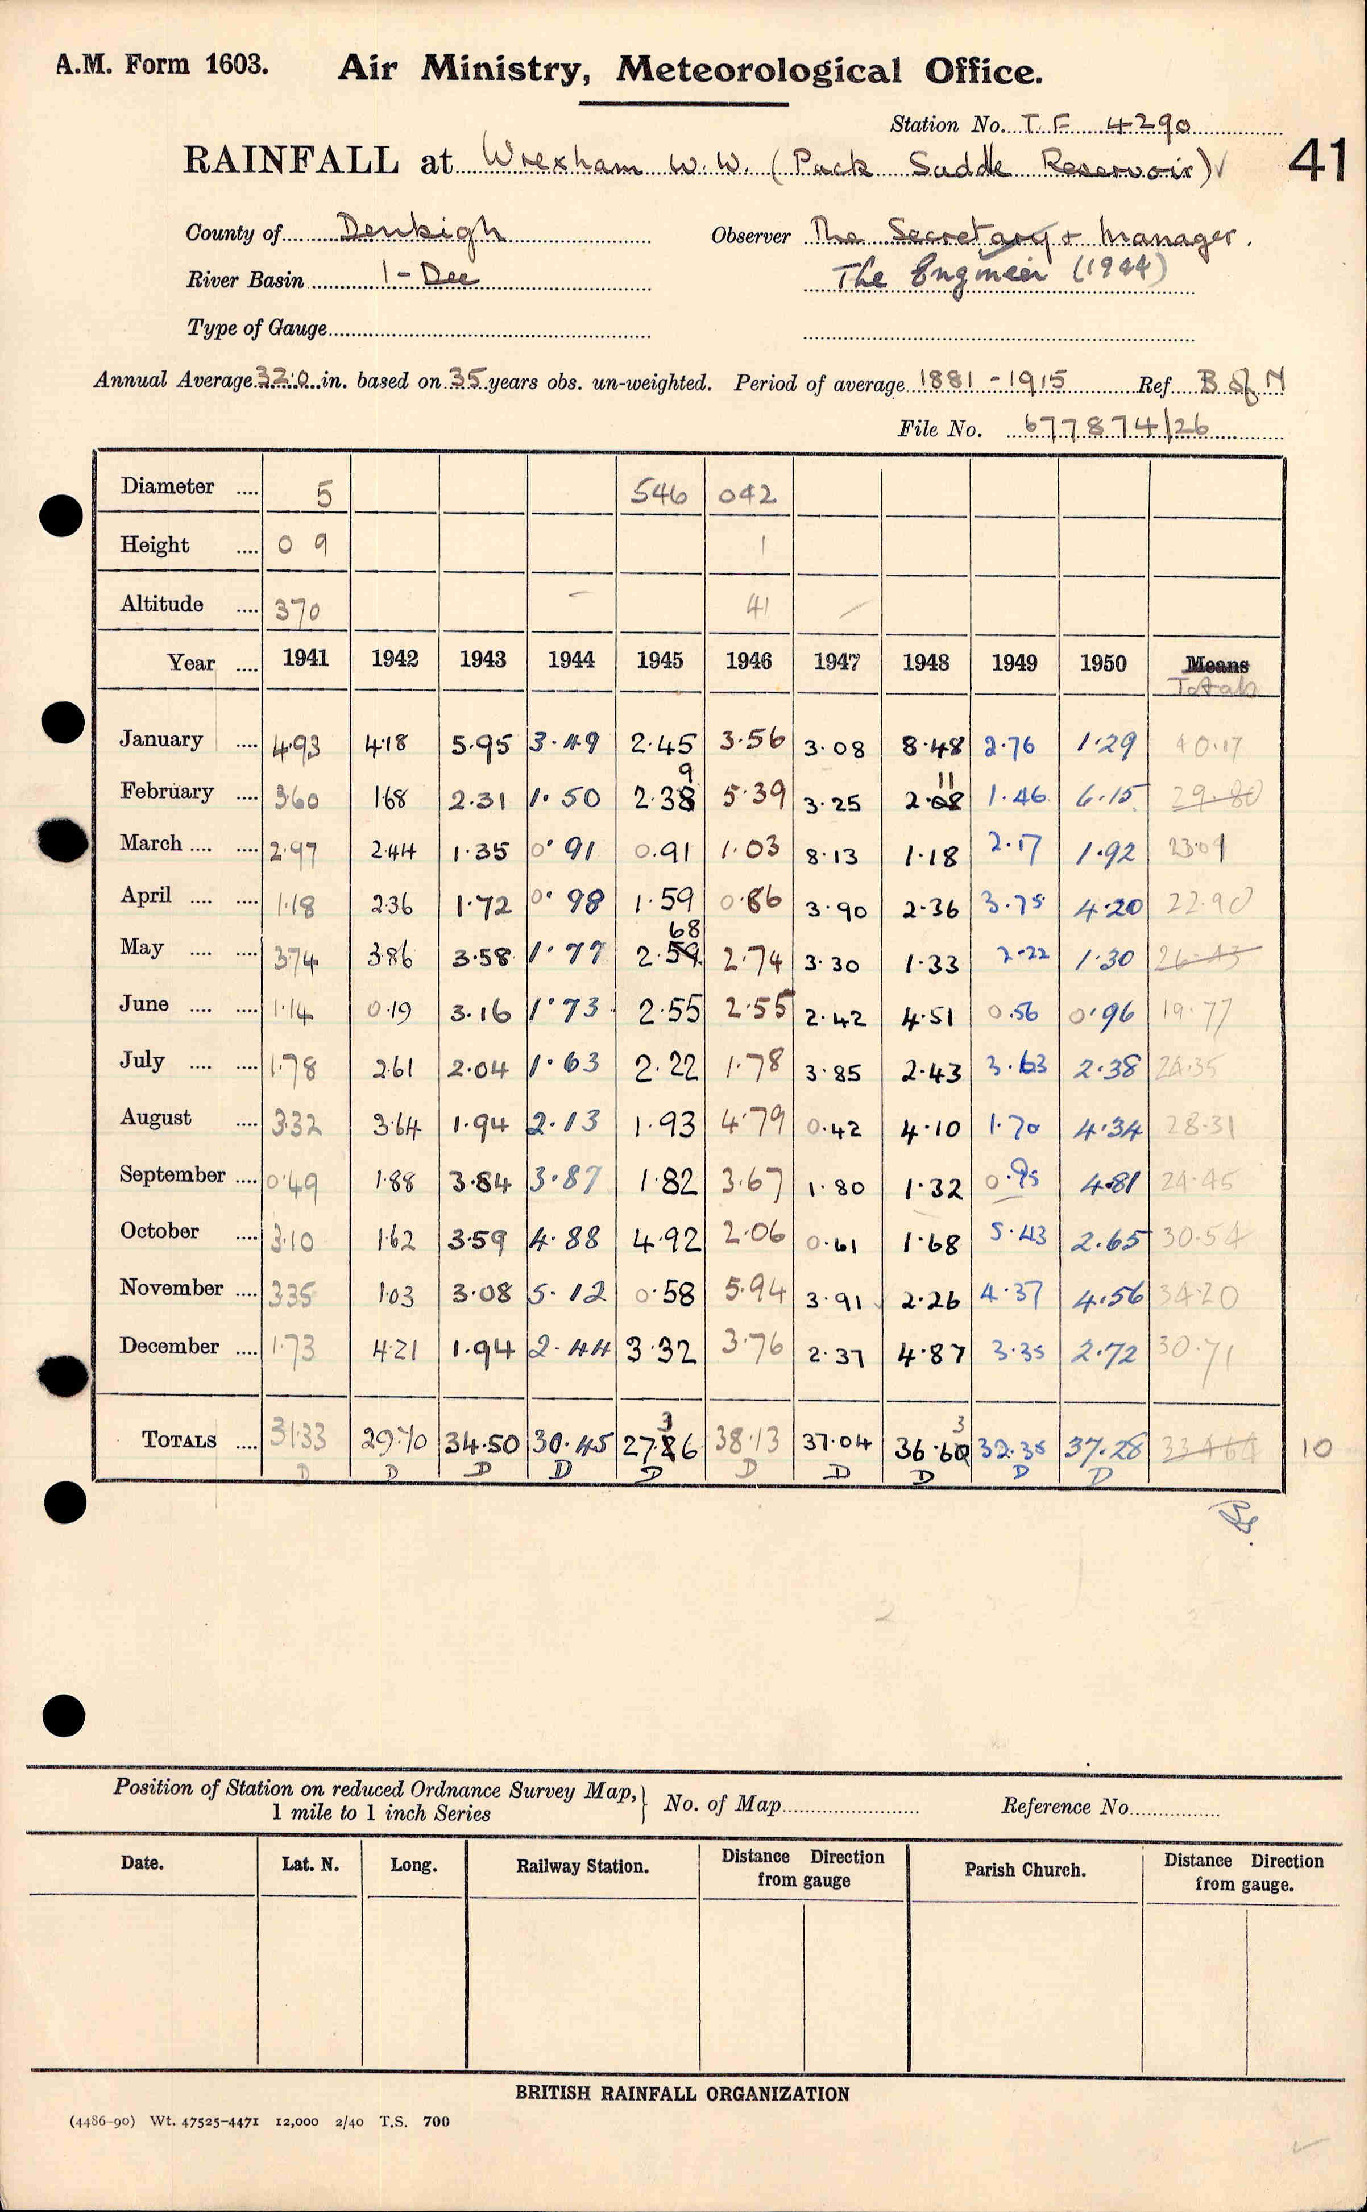 A.M. Form 1603. Air Ministry, Meteorological Office.
Station No. T.F 4290
RAINFALL at Wrexham W.W. (Pack Saddle Reservoir) √ 41
County of Denbigh Observer The Secretary + Manager.
River Basin 1 - Dee The Engineer (1944)
Type of Gauge
Annual Average 32.0 in. based on 35 years obs. un-weighted. Period of average 1881 - 1915 Ref. B of N
File No. 677874/26
Diameter .... 5 546 042
Height .... 0 9 1
Altitude .... 370 - 41 /
Year .... 1941 1942 1943 1944 1945 1946 1947 1948 1949 1950 Means
Totals
January .... 4.93 4.18 5.95 3.49 2.45 3.56 3.08 8.48 2.76 1.29 40.17
9 11
February .... 3.60 1.68 2.31 1.50 2.38 5.39 3.25 2.08 1.46 6.15 29.80
March .... .... 2.97 2.44 1.35 0.91 0.91 1.03 8.13 1.18 2.17 1.92 23.01
April .... .... 1.18 2.36 1.72 0.98 1.59 0.86 3.90 2.36 3.75 4.20 22.90
68
May .... .... 3.74 3.86 3.58 1.77 2.59 2.74 3.30 1.33 2.22 1.30 26.43
June .... .... 1.14 0.19 3.16 1.73 2.55 2.55 2.42 4.51 0.56 0.96 19.77
July .... .... 1.78 2.61 2.04 1.63 2.22 1.78 3.85 2.43 3.63 2.38 24.35
August .... 3.32 3.64 1.94 2.13 1.93 4.79 0.42 4.10 1.70 4.34 28.31
September .... 0.49 1.88 3.84 3.87 1.82 3.67 1.80 1.32 0.95 4.81 24.45
October .... 3.10 1.62 3.59 4.88 4.92 2.06 0.61 1.68 5.43 2.65 30.54
November .... 3.35 1.03 3.08 5.12 0.58 5.94 3.91 2.26 4.37 4.56 34.20
December .... 1.73 4.21 1.94 2.44 3.32 3.76 2.37 4.87 3.35 2.72 30.71
3 3
TOTALS .... 31.33 29.70 34.50 30.45 27.86 38.13 37.04 36.60 32.35 37.28 334.64 10
D D D D D D D D D D
Position of Station on reduced Ordnance Survey Map, } No. of Map Reference No.
1 mile to 1 inch Series
Date. Lat. N. Long. Railway Station. Distance Direction from gauge Parish Church. Distance Direction from gauge.
BRITISH RAINFALL ORGANIZATION
(4486-90) Wt. 47525-4471 12,000 2/40 T.S. 700